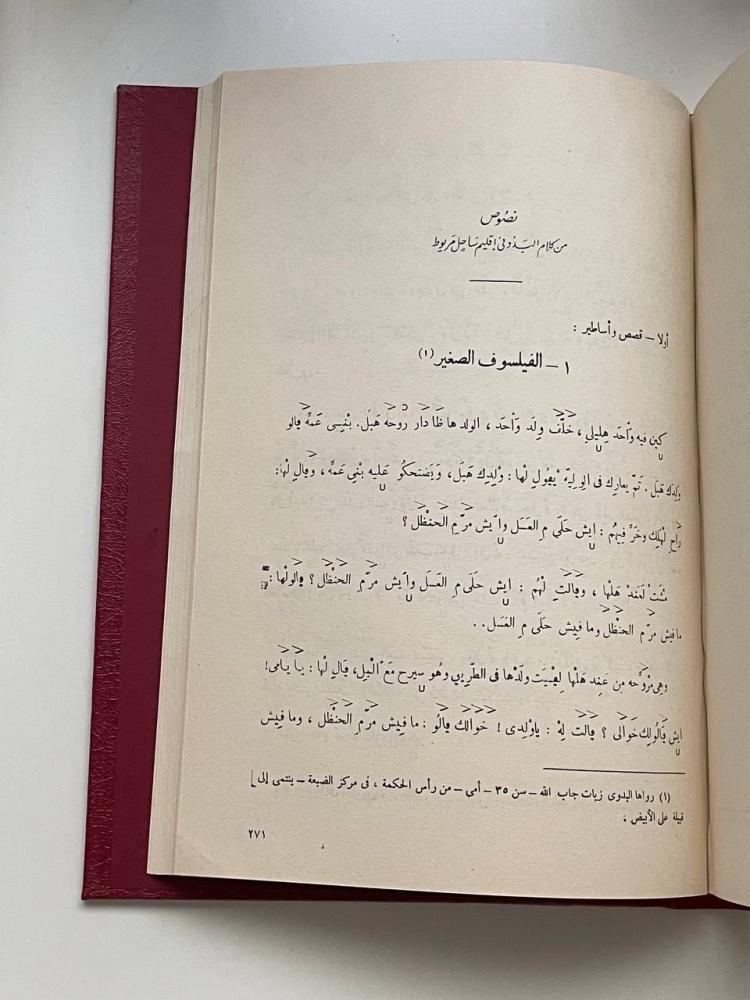 نصوص
من كلام البدو في إقليم ساحل مريوط
أولا – قصص وأساطير :
١ – الفيلسوف الصغير (١)
كين فيه وأحد هليلي ، خلّف ولد وأحد ، الولد ها ظا دار روحه هبل . بنيي عمّه قالو
ولدك هبل . تمّ يعارك في الوليّه يقول لها : ولدك هبل ، ويضحكو عليه بنيي عمّه ، وقال لها :
راح لهلك وخرّ فيهم : إيش حلى م العسل وإيش مرّم الحنظل ؟
مثت لعند هلها ، وقالت لهم : إيش حلى م العسل وإيش مرّم الحنظل ؟ قالولها :
ما فيش مرّم الحنظل وما فيش حلى م العسل . .
وهي مروّحه من عند هلها لقيت ولدها في الطريق وهو سيرح مع الليل ، قال لها : يا يامى !
إيش قالولك خوالى ؟ قالت له : ياولدى ! خوالك قالو : ما فيش مرّم الحنظل ، وما فيش
(١) رواها البدوى زيات جاب الله – سن ٣٥ – أمى – من رأس الحكمة ، فى مركز الضبعة – ينتمى إلى
قبيلة على الأبيض .
٢٧١